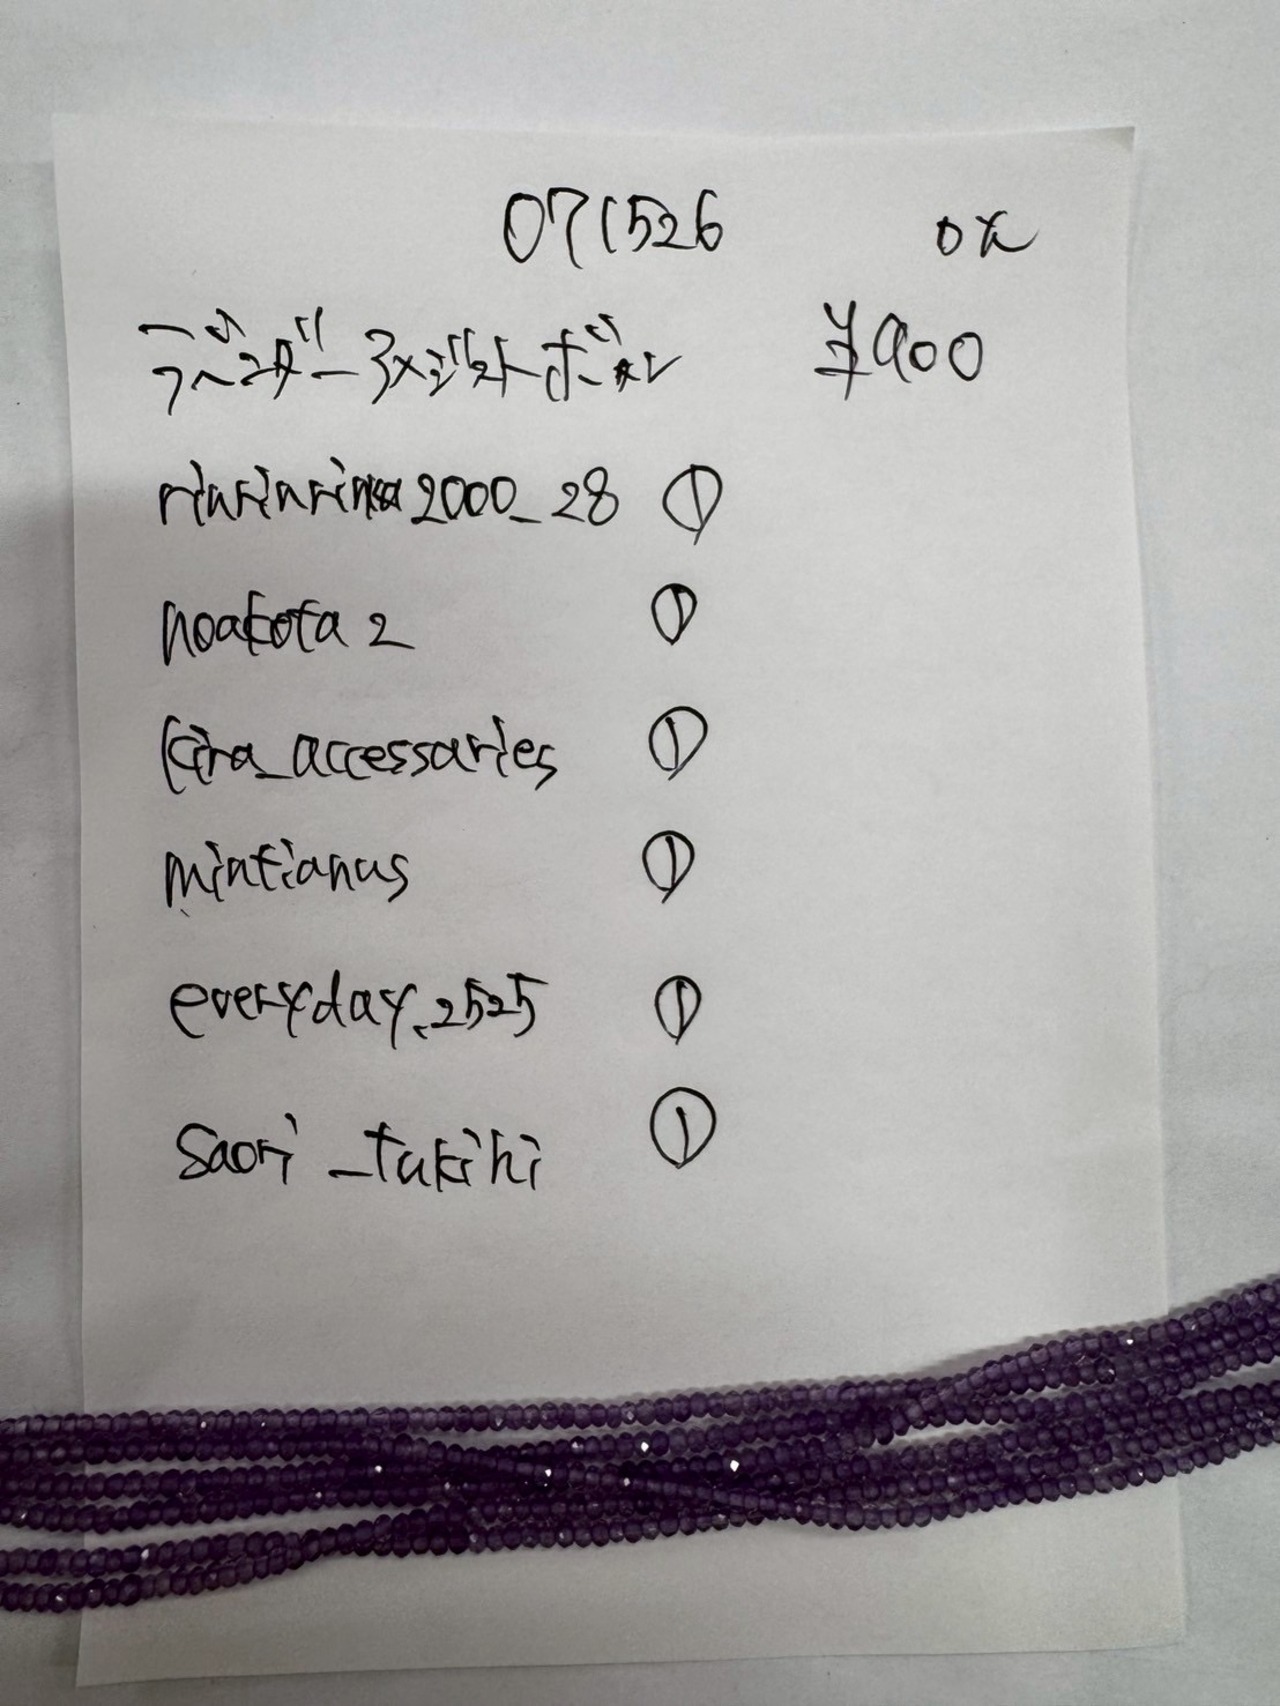 071526 OK
¥900
rinrinrinka2000_28 ①
noakota2 ①
kira_accessaries ①
mintianus ①
everyday.2525 ①
saori_tukihi ①